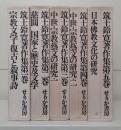 筑土鈴寛著作集第五巻
日本佛教文化の研究
せりか書房
筑土鈴寛著作集第四巻
中世・宗教芸文の研究二
せりか書房
筑土鈴寛著作集第三巻
中世・宗教芸文の研究一
せりか書房
筑土鈴寛著作集第二巻
慈円 国家と歴史及文学
せりか書房
筑土鈴寛著作集第一巻
宗教文学・復古と叙事詩
せりか書房